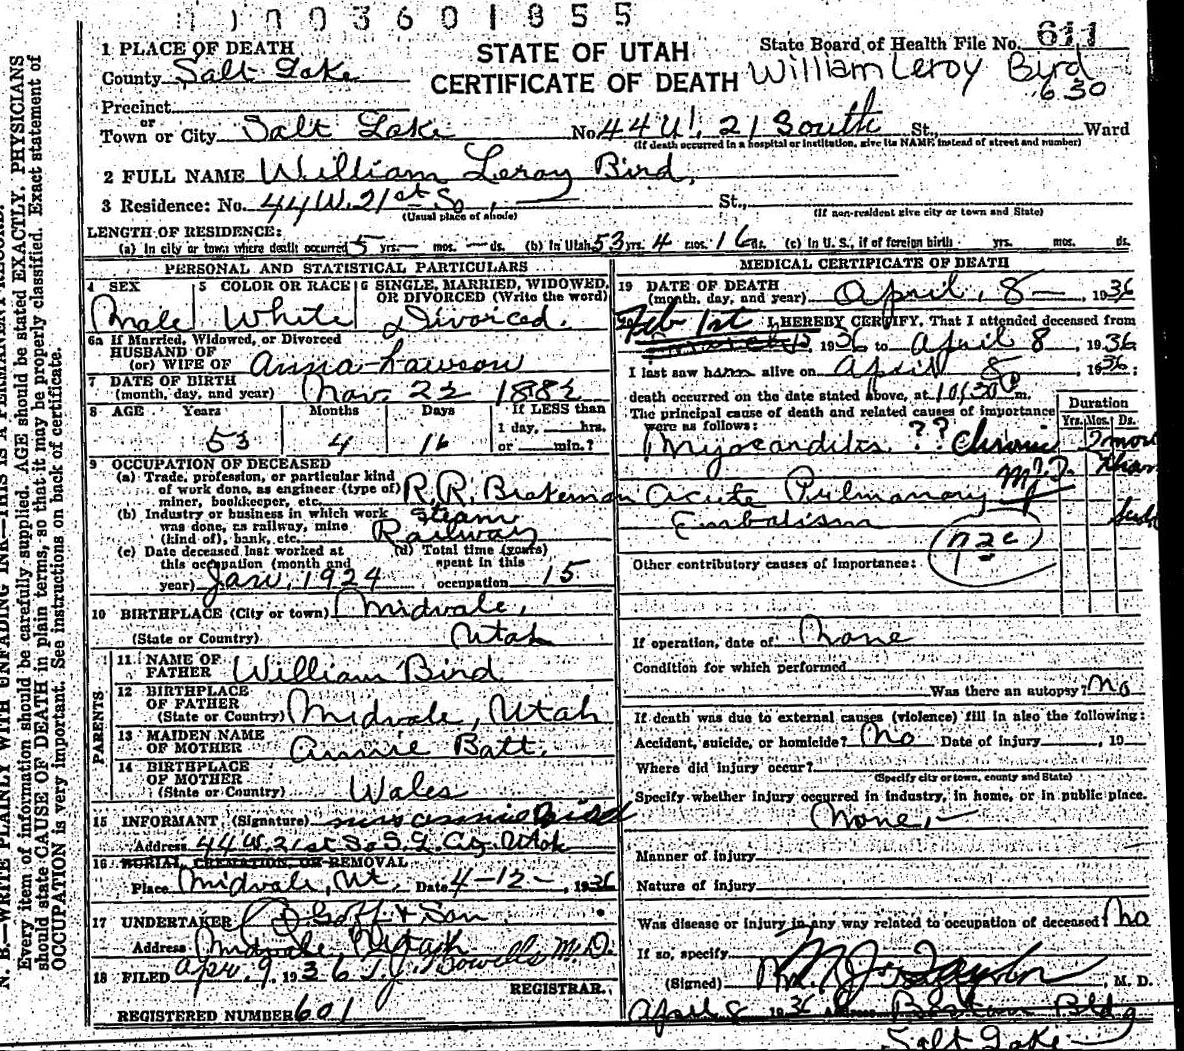 0003601855
1 PLACE OF DEATH
STATE OF UTAH
State Board of Health File No. 611
County Salt Lake
CERTIFICATE OF DEATH
William Leroy Bird
630
Precinct
or
Town or City Salt Lake No. 44 W. 21 South St., Ward
(If death occurred in a hospital or institution, give its NAME instead of street and number)
2 FULL NAME William Leroy Bird,
3 Residence: No. 44 W. 21st So. St.,
(Usual place of abode) (If non-resident give city or town and State)
LENGTH OF RESIDENCE:
(a) In city or town where death occurred 5 yrs. — mos. — ds. (b) In Utah 53 yrs. 4 mos. 16 ds. (c) In U. S., if of foreign birth yrs. mos. ds.
PERSONAL AND STATISTICAL PARTICULARS
4 SEX 5 COLOR OR RACE 6 SINGLE, MARRIED, WIDOWED, OR DIVORCED (Write the word)
Male White Divorced.
6a If Married, Widowed, or Divorced
HUSBAND OF
(or) WIFE OF Anna Lawson
7 DATE OF BIRTH
(month, day, and year) Nov. 22 1882
8 AGE Years Months Days If LESS than
1 day, hrs.
53 4 16 or min.?
9 OCCUPATION OF DECEASED
(a) Trade, profession, or particular kind
of work done, as engineer (type of)
miner, bookkeeper, etc. R. R. Brakeman
(b) Industry or business in which work
was done, as railway, mine
(kind of), bank, etc. Steam Railway
(c) Date deceased last worked at
this occupation (month and
year) Jan. 1924
(d) Total time (years)
spent in this
occupation 15
10 BIRTHPLACE (City or town) Midvale,
(State or Country) Utah
PARENTS
11 NAME OF
FATHER William Bird
12 BIRTHPLACE
OF FATHER
(State or Country) Midvale, Utah
13 MAIDEN NAME
OF MOTHER Annie Batt.
14 BIRTHPLACE
OF MOTHER
(State or Country) Wales
15 INFORMANT (Signature) Mrs Annie Bird
Address 44 W. 21st So. S. L. City. Utah
16 BURIAL, CREMATION, OR REMOVAL
Place Midvale, Ut. Date 4-12-, 1936
17 UNDERTAKER Goff & Son
Address Midvale Utah
18 FILED Apr. 9, 1936 T. J. Howells M. D.
REGISTRAR.
REGISTERED NUMBER 601
MEDICAL CERTIFICATE OF DEATH
19 DATE OF DEATH
(month, day, and year) April, 8 —, 1936
20 Feb 1st I HEREBY CERTIFY, That I attended deceased from
1936 to April 8, 1936
I last saw him alive on April 8, 1936;
death occurred on the date stated above, at 10:30 P m.
The principal cause of death and related causes of importance
were as follows:
Duration
Yrs. Mos. Ds.
Myocarditis ?? Chronic
M.J.T.
Acute Pulmonary
Embolism
(72c)
Other contributory causes of importance:
If operation, date of None
Condition for which performed
Was there an autopsy? No
If death was due to external causes (violence) fill in also the following:
Accident, suicide, or homicide? No Date of injury, 19
Where did injury occur?
(Specify city or town, county and State)
Specify whether injury occurred in industry, in home, or in public place.
None,—
Manner of injury
Nature of injury
Was disease or injury in any way related to occupation of deceased? No
If so, specify
(Signed) M J Taylor, M. D.
April 8 1936 Address Boston Bldg
Salt Lake
N. B.—WRITE PLAINLY WITH UNFADING INK—THIS IS A PERMANENT RECORD.
Every item of information should be carefully supplied. AGE should be stated EXACTLY. PHYSICIANS
should state CAUSE OF DEATH in plain terms, so that it may be properly classified. Exact statement of
OCCUPATION is very important. See instructions on back of certificate.